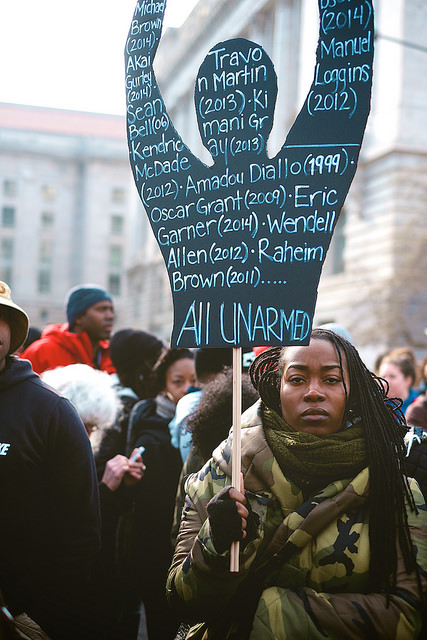 Michael
Brown
(2014)
Akai
Gurley
(2014)
Sean
Bell(06)
Kendric
McDade
(2012) · Amadou Diallo (1999) ·
Oscar Grant (2009) · Eric
Garner (2014) · Wendell
Allen (2012) · Raheim
Brown (2011).....
All UNARMED
Travo
n Martin
(2013) · Ki
mani Gr
ay (2013)
(2014)
Manuel
Loggins
(2012)